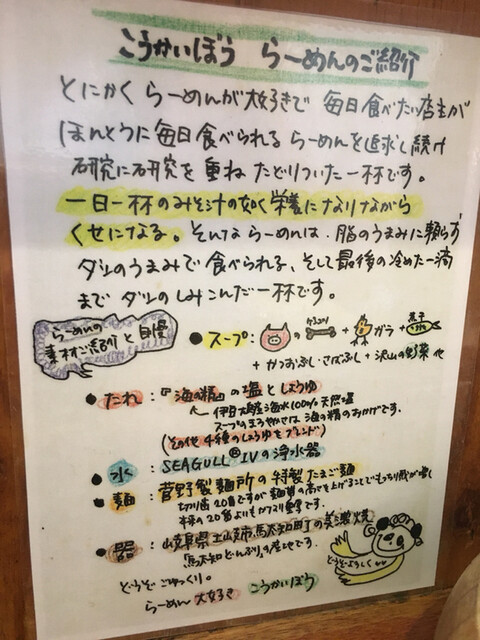 こうかいぼう らーめんのご紹介
とにかく らーめんが大好きで 毎日食べたい店主が
ほんとうに毎日食べられる らーめんを追求し続け
研究に研究を重ね たどりついた一杯です。
一日一杯のみそ汁の如く栄養になりながら
くせになる。そんな らーめんは、脂のうまみに頼らず
ダシのうまみで 食べられる、そして最後の冷めた一滴
まで ダシのしみこんだ一杯です。
らーめんの
素材ご紹介と自慢
●スープ: ゲンコツ + ガラ + 煮干
+ かつおぶし・さばぶし + 沢山の野菜 他
● たれ:『海の精』の塩としょうゆ
伊豆大島産海水100%天然塩
スープのまろやかさは海の精のおかげです。
(その他4種のしょうゆをブレンド)
● 水 : SEAGULL® IVの浄水器
● 麺 : 菅野製麺所の特製たまご麺
切り歯20番ですが麺質の高さを上げることでもっちり感が増し
本来の20番よりも
● 器 : 岐阜県土岐市駄知町の美濃焼
"駄知どんぶり"の産地です。
どうぞ ごゆっくり。
らーめん 大好き こうかいぼう
どうぞよろしく